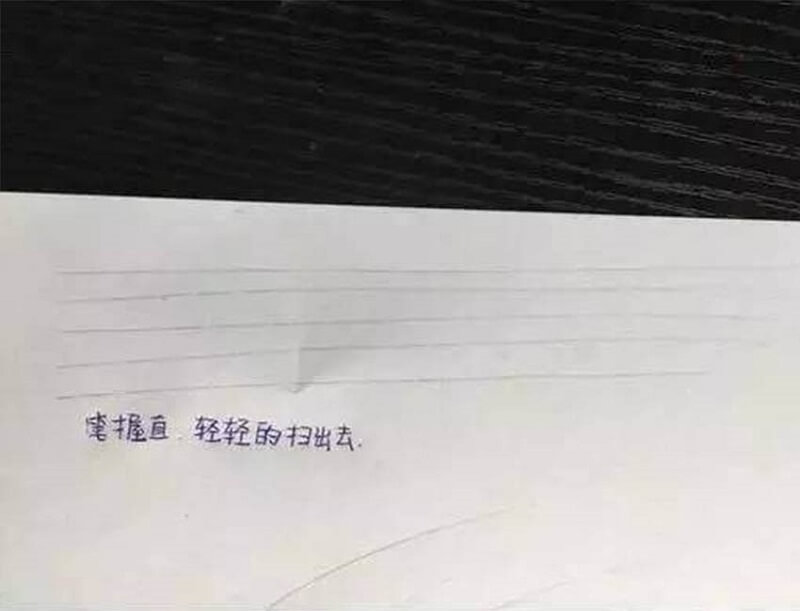 笔握直.轻轻的扫出去.